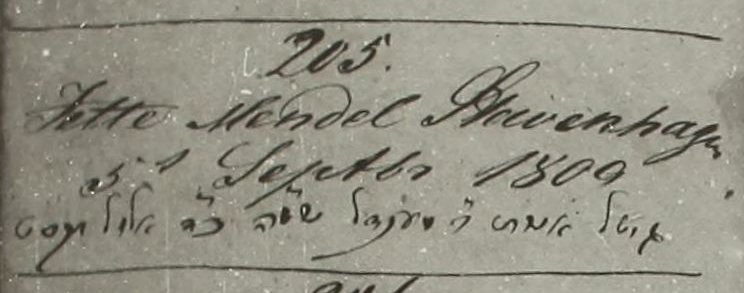 205.
Jette Mendel Stavenhagen
5t Septbr 1809
גיטל אשת ר' מענדל כ"ד אלול תקסט